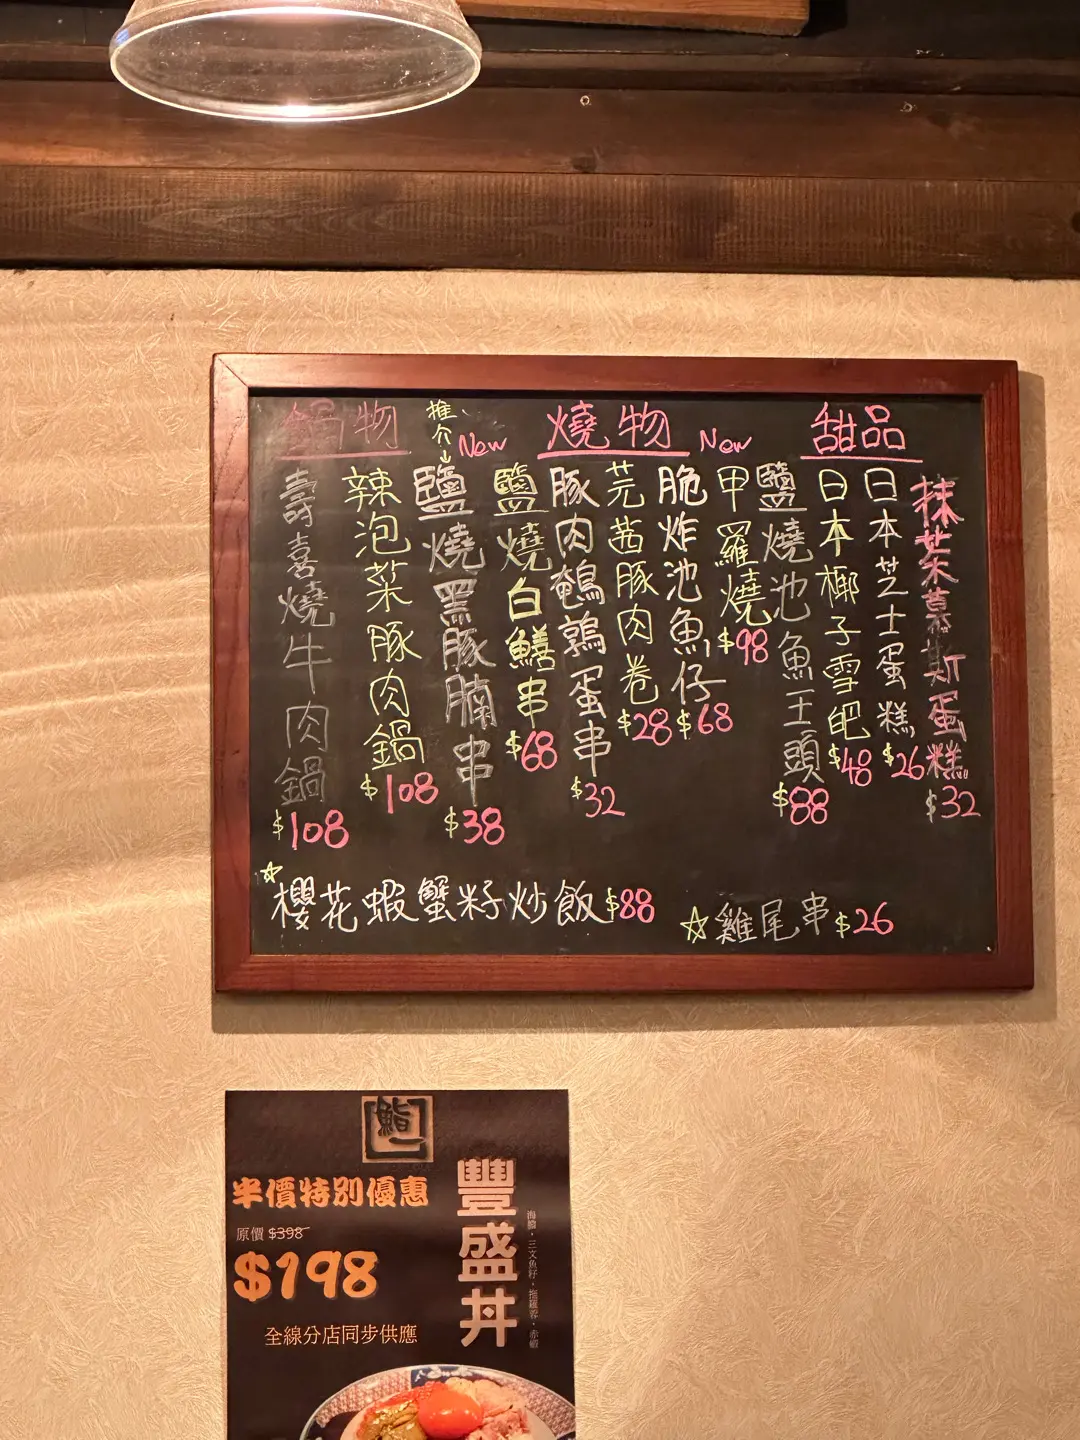 鍋物
推介↓
New
燒物
New
甜品
壽喜燒牛肉鍋
$108
辣泡菜豚肉鍋
$108
鹽燒黑豚腩串
$38
鹽燒白鱔串
$68
豚肉鵪鶉蛋串
$32
芫茜豚肉卷
$28
脆炸池魚仔
$68
甲羅燒
$98
鹽燒池魚王頭
$88
日本椰子雪吧
$48
日本芝士蛋糕
$26
抹茶慕斯蛋糕
$32
☆櫻花蝦蟹籽炒飯$88
☆雞尾串$26
鮨一
半價特別優惠
原價 $398
$198
全線分店同步供應
豐盛丼
海膽・三文魚籽・拖羅蓉・赤蝦